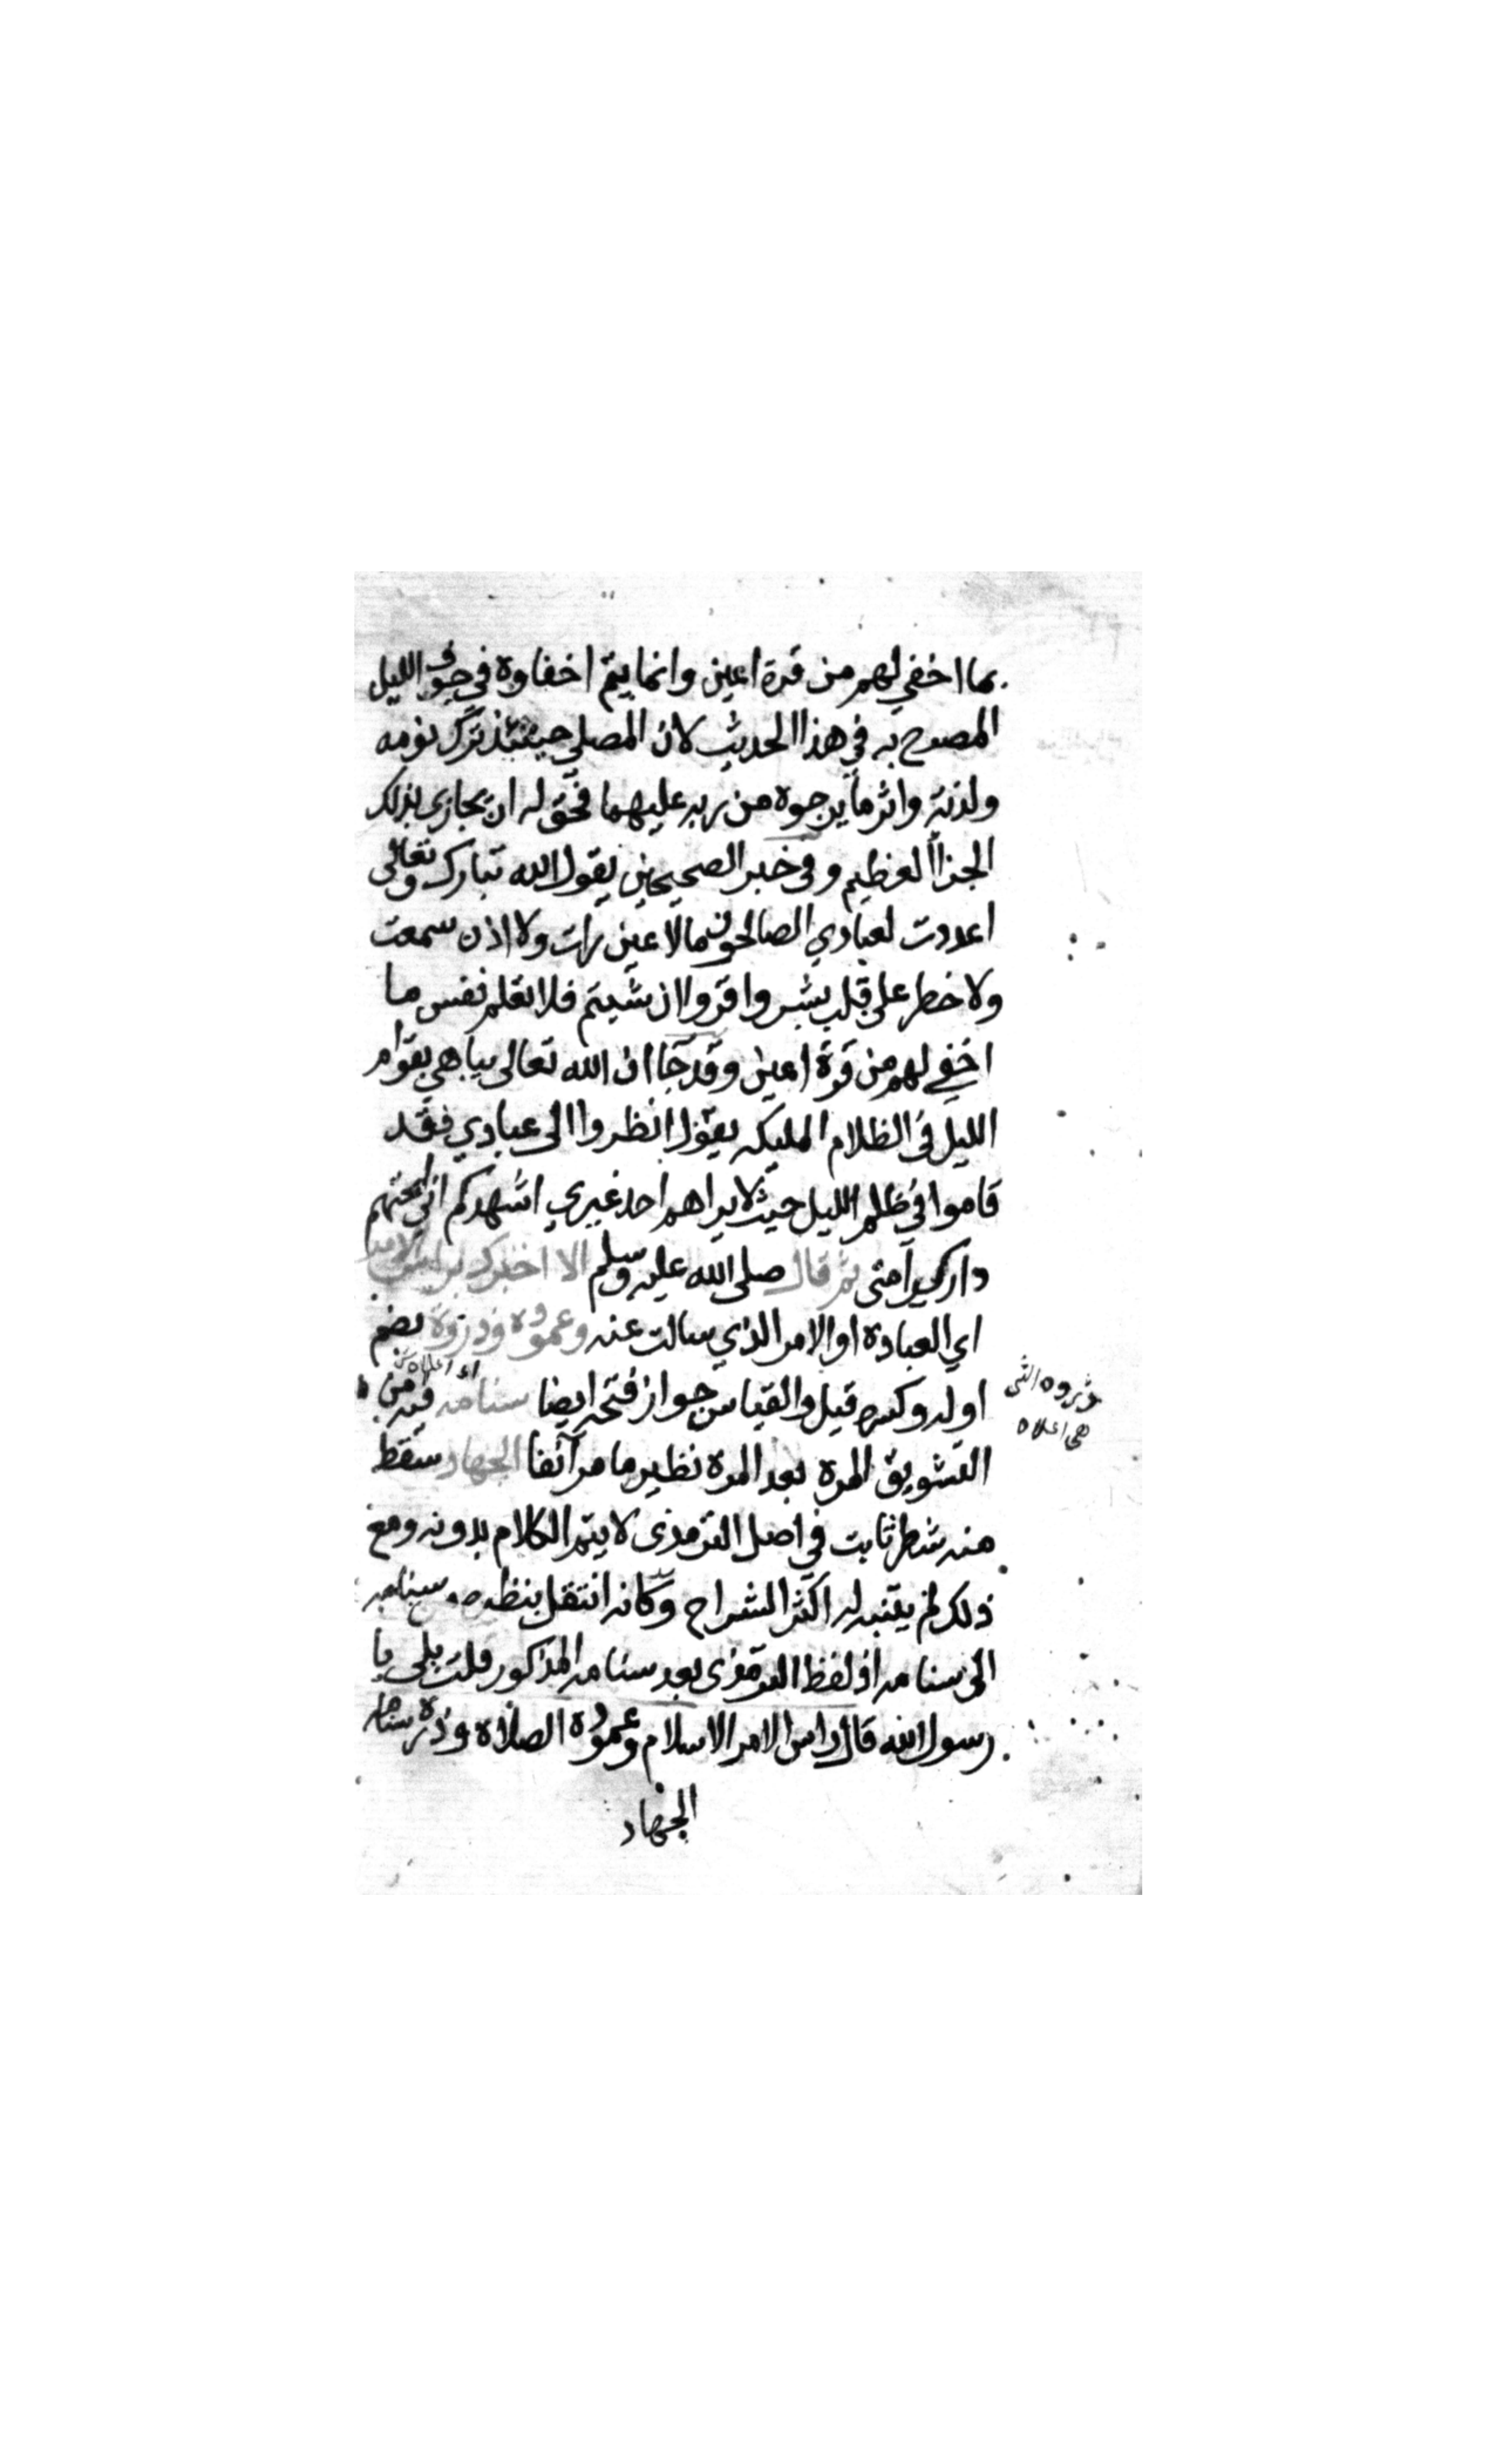 بما اخفي لهم من قرة اعين وانما يتم اخفاوه في جوف الليل
المصرح به في هذا الحديث لان المصلي حينئذ ترك نومه
ولذته واثر ما يرجوه من ربه عليهما فحق له ان يجازي بذلك
الجزا العظيم وفي خبر الصحيحين يقول الله تبارك وتعالى
اعددت لعبادي الصالحون مالا عين رات ولا اذن سمعت
ولا خطر على قلب بشر واقروا ان شيتم فلا تعلم نفس ما
اخفي لهم من قرة اعين وقد جا ان الله تعالى يباهي بقوام
الليل في الظلام المليكه يقول انظروا الى عبادي فقد
قاموا في ظلم الليل حيث لا يراهم احد غيري اشهدكم اني ابحتهم
دار كرامتي ثم قال صلى الله عليه وسلم الا اخبرك براس الامر
اي العبادة او الامر الذي سالت عنه وعموده وذروة بضم
اوله وكسره قيل والقياس جواز فتحه ايضا سنامه اي اعلاه فيه من
وذروه الشي
هي اعلاه
التشويق المرة بعد المرة نظير ما مر آنفا الجهاد سقط
منه شطر ثابت في اصل الترمذي لا يتم الكلام بدونه ومع
ذلك لم يتنبه له اكثر الشراح وكانه انتقل بنظره سنامه
الى سنامه اذ لفظ الترمذي بعد سنامه المذكور قلت بلى يا
رسول الله قال راس الامر الاسلام وعموده الصلاة وذروة سنامه
الجهاد